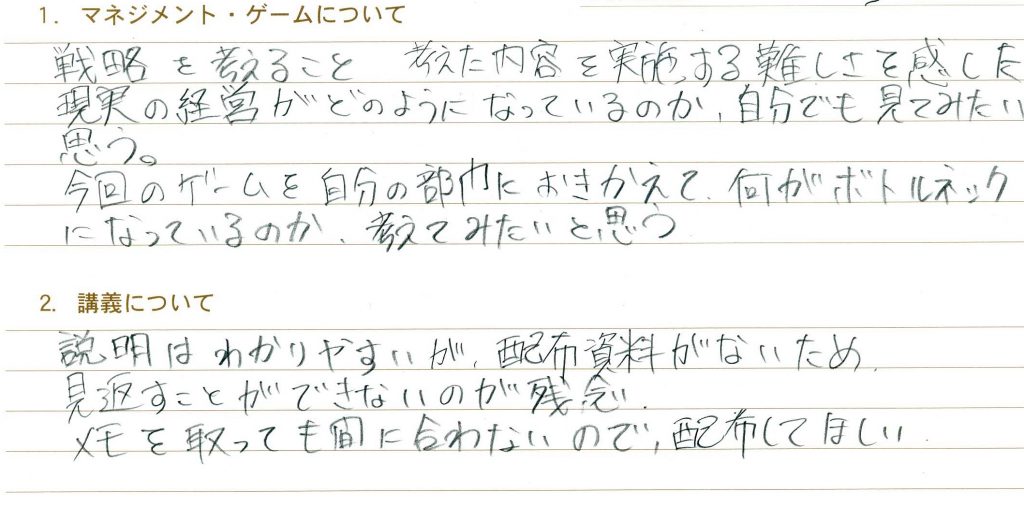 1. マネジメント・ゲームについて
戦略を考えること 考えた内容を実施する難しさを感した
現実の経営がどのようになっているのか、自分でも見てみたい
思う。
今回のゲームを自分の部門におきかえて、何がボトルネック
になっているのか、考えてみたいと思う
2. 講義について
説明はわかりやすいが、配布資料がないため、
見返すことができないのが残念。
メモを取っても間に合わないので、配布してほしい.